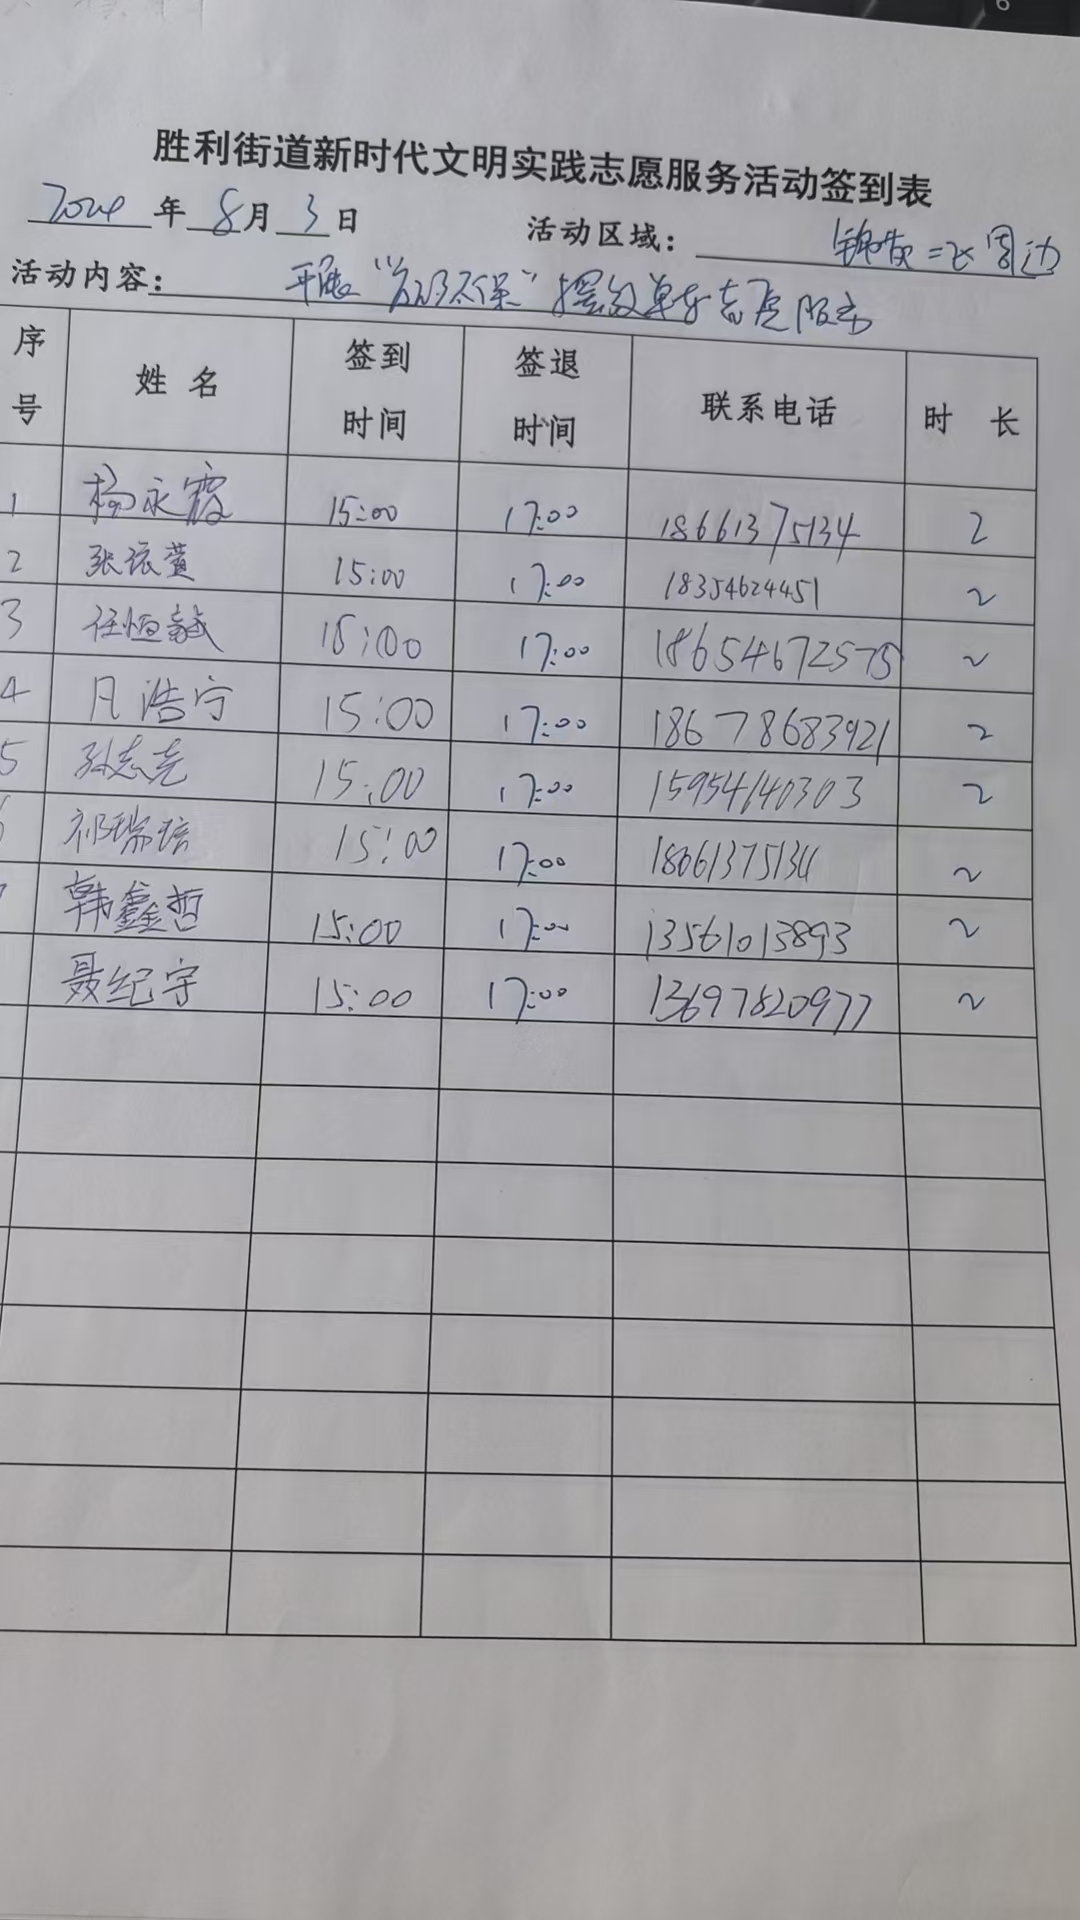 胜利街道新时代文明实践志愿服务活动签到表
2024年8月3日 活动区域: 锦苑二区周边
活动内容: 开展"文明环保"摆放单车志愿服务
序号 姓名 签到时间 签退时间 联系电话 时长
1 杨永霞 15:00 17:00 18661375134 2
2 张振萱 15:00 17:00 18354624451 2
3 任恒毅 15:00 17:00 18654672575 2
4 凡浩宁 15:00 17:00 18678683921 2
5 孙志尧 15:00 17:00 15954640303 2
祁瑞琦 15:00 17:00 18661375134 2
韩鑫哲 15:00 17:00 13561013893 2
聂纪宇 15:00 17:00 13697820977 2